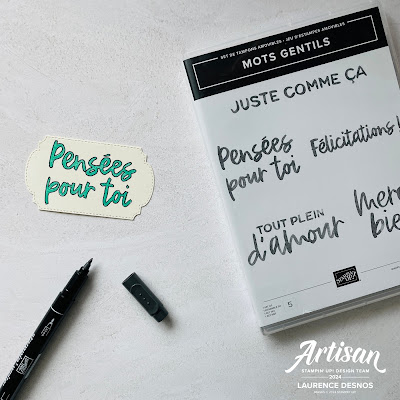 SET DE TAMPONS AMOVIBLES • JEU D'ESTAMPES AMOVIBLES
MOTS GENTILS
JUSTE COMME ÇA
Pensées
pour toi
Félicitations!
TOUT PLEIN
d'amour
Merci
bie
Pensées
pour toi
STAMPIN' UP!
5
Artisan
STAMPIN' UP! DESIGN TEAM
2024
LAURENCE DESNOS